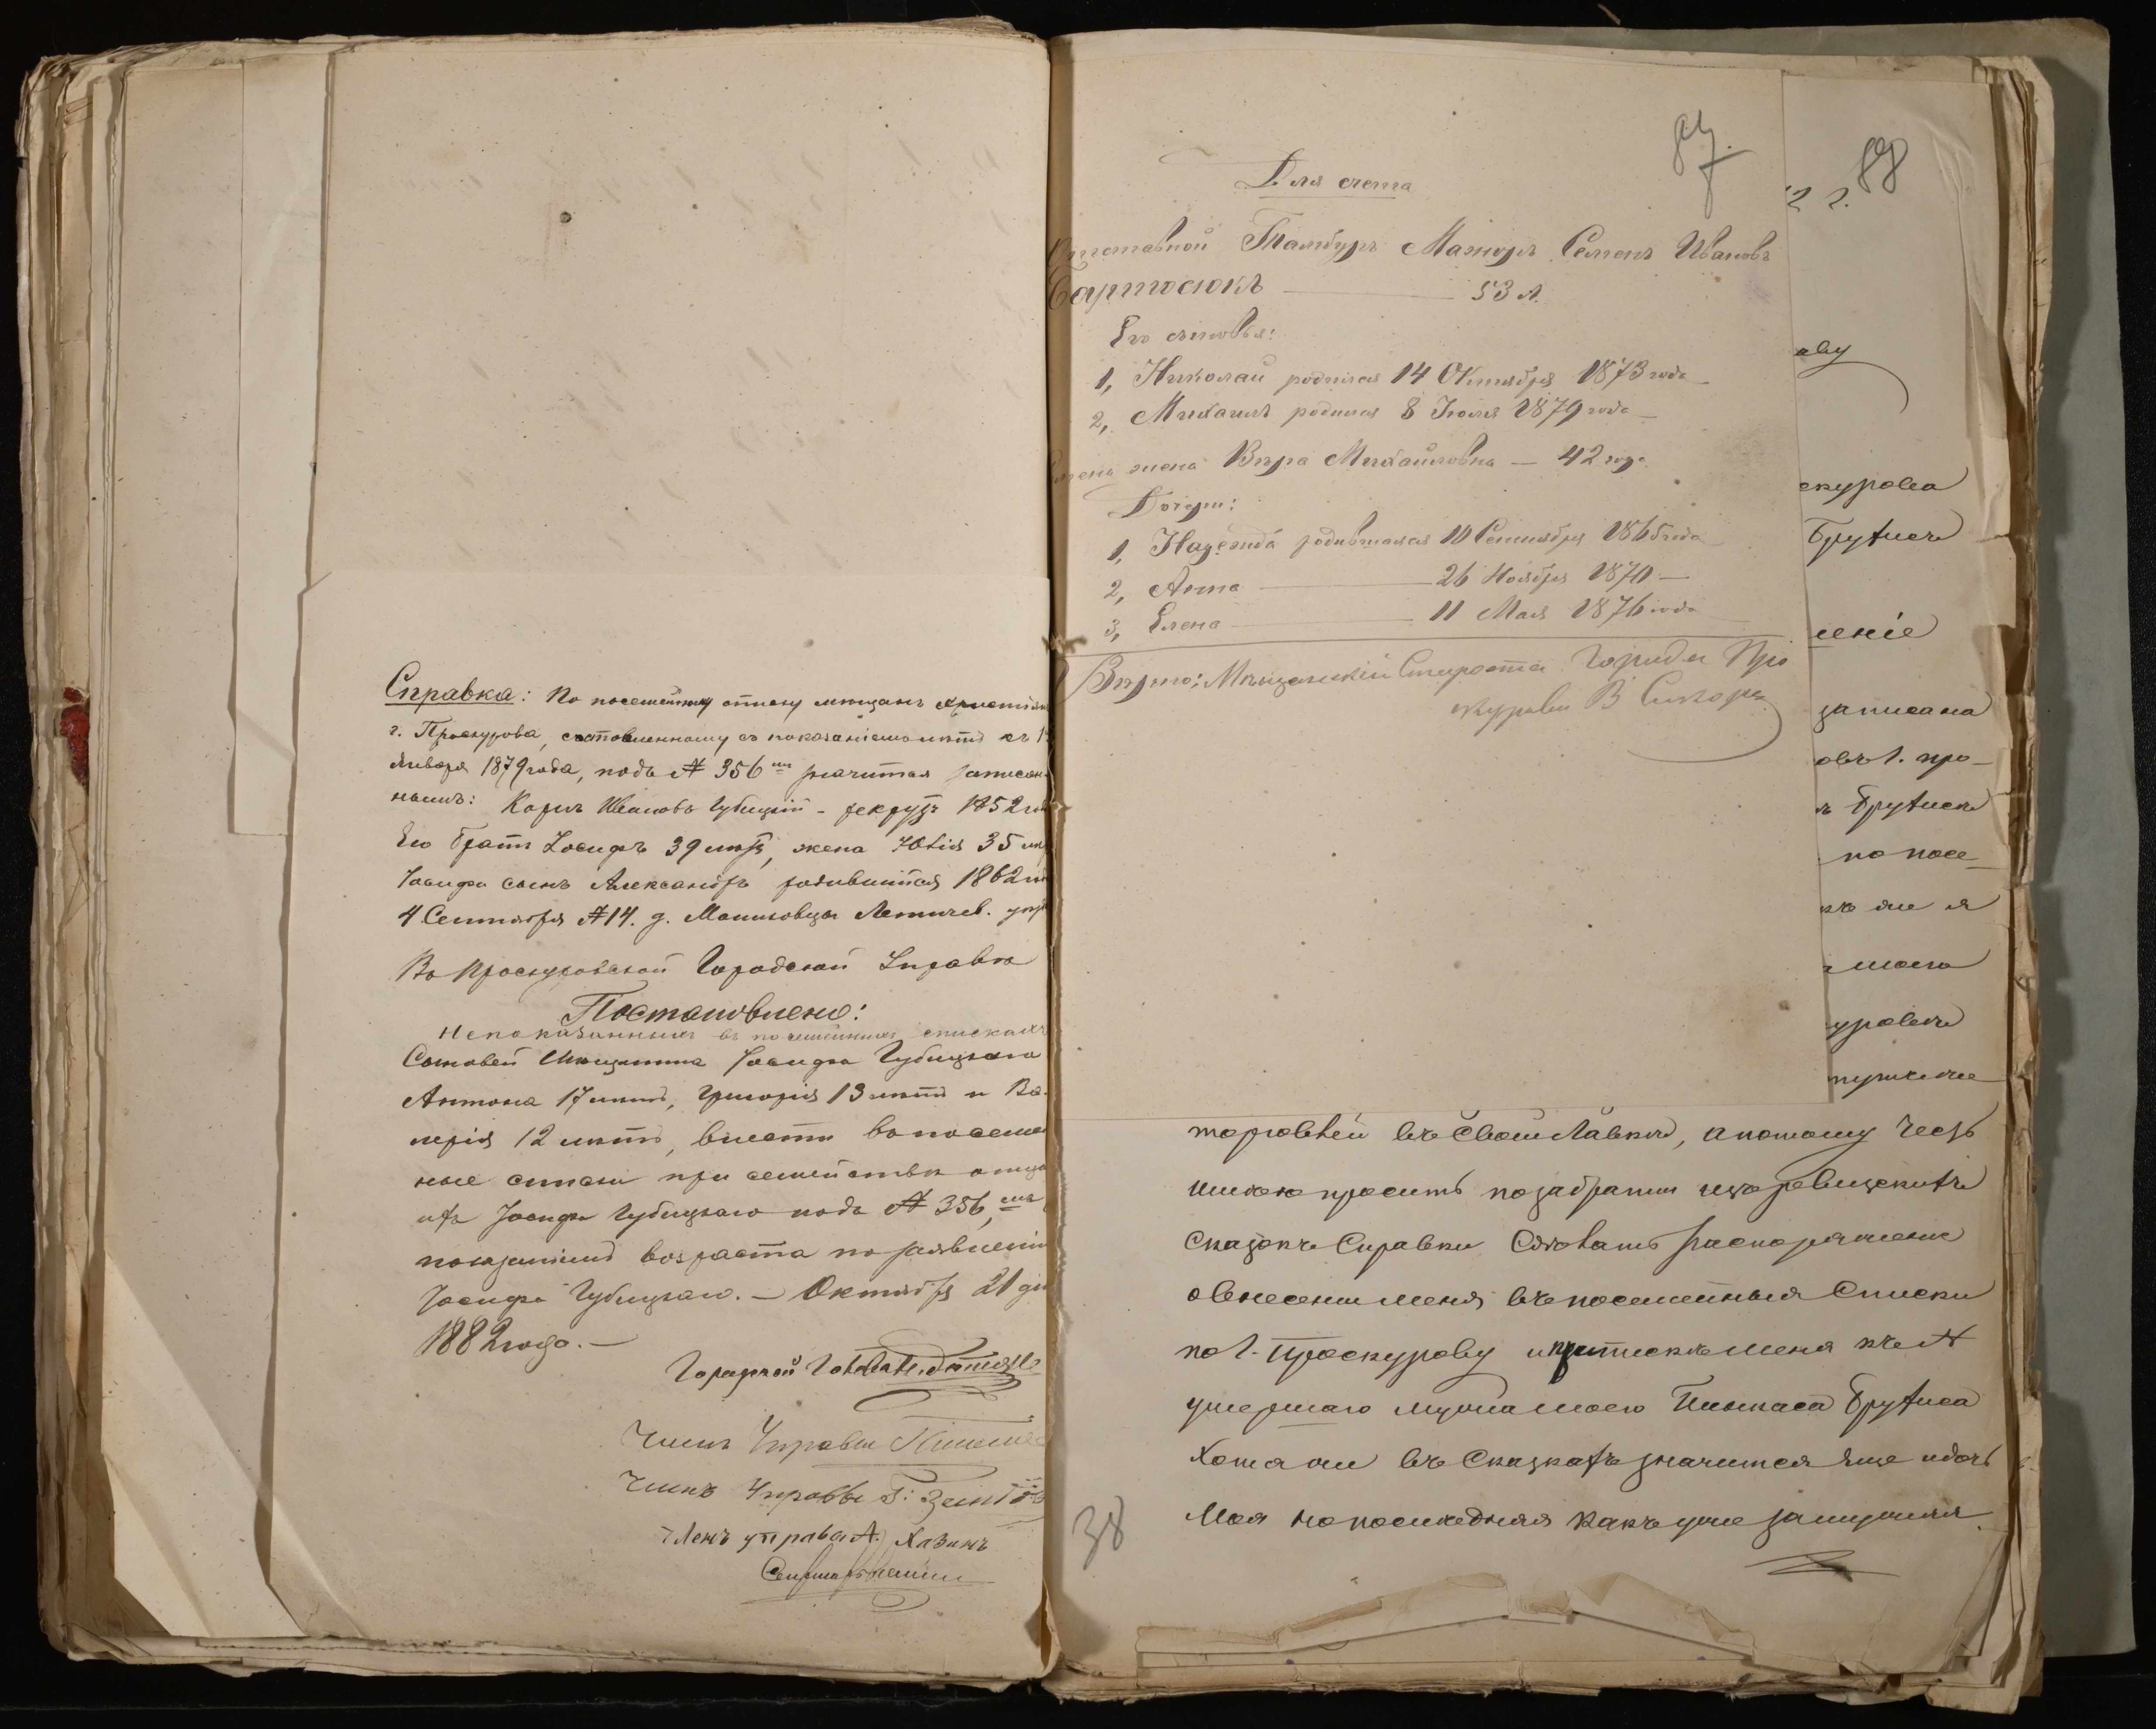 Справка: По посемейному списку мещанъ христіан
г. Проскурова, составленному съ показаніемъ лѣтъ къ 1
Января 1879 года, подъ № 356мъ значится записан-
нымъ: Карлъ Ивановъ Губицкій - рекрутъ 1852 го
Его братъ Іосифъ 39 лѣтъ, жена Юлія 35 лѣ
Іосифа сынъ Александръ родившійся 1862 го
4 Сентября № 14. д. Машковцы Летичев. уѣз
Въ Проскуровской Городской Управѣ
Постановлено:
Непоказанныхъ въ посемейныхъ спискахъ
Сыновей Мѣщанина Іосифа Губицкаго
Антона 17 лѣтъ, Григорія 13 лѣтъ и Ва-
лерія 12 лѣтъ, внести въ посемей
ные списки при семействѣ отца
ихъ Іосифа Губицкаго подъ № 356,мъ
показаніемъ возраста по заявленію
Іосифа Губицкаго. — Октября 21 дня
1882 года. —
Городской Голова
Членъ Управы
Членъ Управы Г:
Членъ управы А. Хазинъ
87.
Для счета
Отставной Тамбуръ Мажоръ Семенъ Ивановъ
Бартосюкъ — 53 л.
Его сыновья:
1, Николай родился 14 Октября 1873 года —
2, Михаилъ родился 8 Іюля 1879 года —
Семена жена Вѣра Михайловна — 42 года
Дочери:
1, Надежда родившаяся 10 Сентября 1865 года
2, Анна — 26 Ноября 1870 —
3, Елена — 11 Мая 1876 года
Вѣрно: Мѣщанскій Староста Города Про
скурова В Сикора
88
2 г.
ову
скурова
Брухисъ
леніе
записана
овъ г. про-
ъ Брухиса
по посе-
къ же я
моего
уровѣ
торговлей въ своей Лавкѣ, а потому честь
имѣю просить по забраніи изъ ревизскихъ
сказокъ справки сдѣлать распоряженіе
о внесеніи меня въ посемейныя списки
по г. Проскурову и припискѣ меня къ №
умершаго мужа моего Пинкаса Брухиса
Хотя же въ сказкахъ значится еще и дочь
Моя но послѣдняя какъ уже замужняя
38